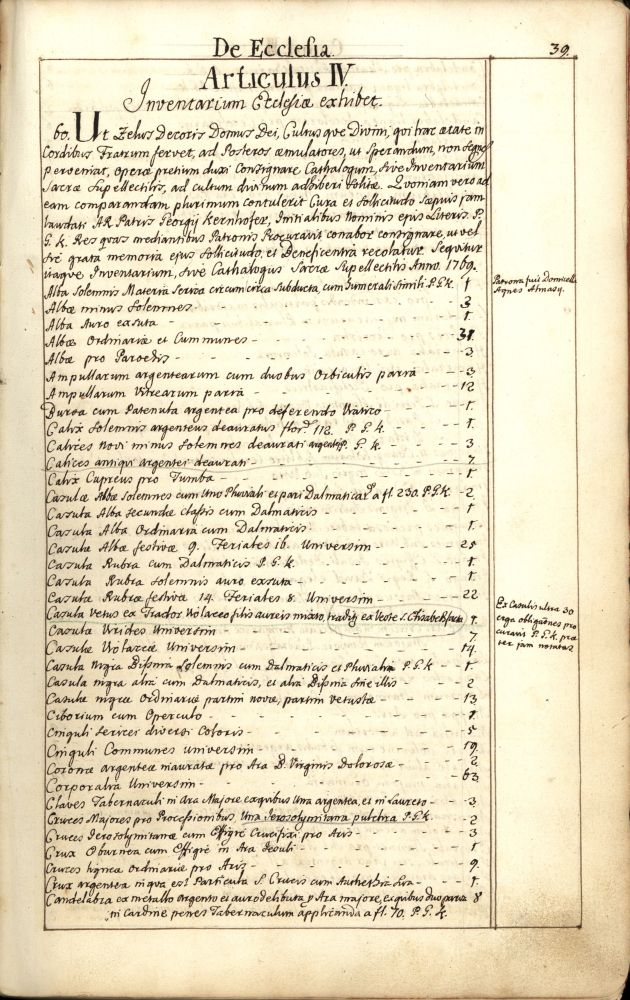 De Ecclesia.
39.
Articulus IV.
Inventarium Ecclesiæ exhibet.
60. Ut Zelus Decoris Domus Dei, Cultusque Divini, qui hac ætate in
Cordibus Fratrum fervet, ad Posteros æmulatores, ut Sperandum, non segnes
perveniat, operæ pretium duxi Consignare Cathalogum, sive Inventarium
Sacræ Supellectilis, ad cultum divinum adhiberi solitæ. Quoniam vero ad
eam comparandam plurimum contulerit Cura et sollicitudo sæpius jam
laudati A.R. Patris Georgij Kernhofer, Initialibus Nominis ejus Literis. P.
G. K. Res quas mediantibus Patronis Procuravit conabor consignare, ut vel
sic grata memoria ejus sollicitudo, et Beneficentia recolatur. Sequitur
itaque Inventarium, sive Cathalogus Sacræ Supellectilis Anno 1769.
Alba solemnis Materia Sericea circumcirca subducta, cum humerali simili P.G.K. 1
Patrona fuit Domicella
Agnes Almasy.
Albæ minus solemnes - 3
Alba Auro exsuta - 1.
Albæ Ordinariæ et Communes - 31.
Albæ pro Parochis - 3
Ampullarum argentearum cum duobus Orbiculis paria - 3
Ampullarum Vitrearum paria - 12
Bursa cum Patenula argentea pro deferendo Viatico - 1.
Calix solemnis argenteus deauratus flor. 112. P.G.K. - 1.
Calices novi minus solemnes deaurati argentei P.G.K. - 3
Calices antiqui argentei deaurati - 7
Calix Cupreus pro Tumba - 1.
Casulæ Albæ solemnes cum Uno Pluviali et pari Dalmaticarum a fl. 230. P.G.K. - 2
Casula Alba secundæ classis cum Dalmaticis - 1
Casula Alba Ordinaria cum Dalmaticis. - 1.
Casulæ Albæ festivæ 9. Feriales 16. Universim - 25
Casula Rubra cum Dalmaticis P.G.K. - 1.
Casula Rubra solemnis auro exsuta - 1.
Casulæ Rubræ festivæ 14. Feriales 8. Universim - 22
Casula Vetus ex Trador Violaceo filis aureis mixto, traditur ex Veste S. Elisabeth fuisse 1.
Ex Casulis ultra 30
erga obligationes pro
curavit P.G.K. præ
ter jam notatas
Casulæ Virides Universim - 7
Casulæ Violaceæ Universim - 14.
Casula Nigra Solemnis cum Dalmaticis et Pluviali P.G.K - 1
Casula nigra alia cum Dalmaticis, et alia sine illis - 2
Casulæ nigræ Ordinariæ partim novæ, partim vetustæ - 13
Ciborium cum Operculo - 1.
Cinguli sericei diversi Coloris - 5
Cinguli Communes universim - 19.
Coronæ argenteæ inauratæ pro Ara B. Virginis Dolorosæ - 2
Corporalia Universim - 63
Claves Tabernaculi in Ara Majore ex quibus Una argentea, et in Laureto - 3
Cruces Majores pro Processionibus, Una Jerosolymitana pulchra P.G.K. - 2
Cruces Jerosolymitanæ cum Effigie Crucifixi pro Aris - 3
Crux Eburnea cum Effigie in Ara Jesuli - 1
Cruces ligneæ Ordinariæ pro Aris - 9.
Crux argentea in qua est Particula S. Crucis cum Authentia sua - 1.
Candelabra ex metallo argento et auro delibuta pro Ara majore, ex quibus duo parva 8
in cardine penes Tabernaculum applicanda a fl. 70. P.G.K.